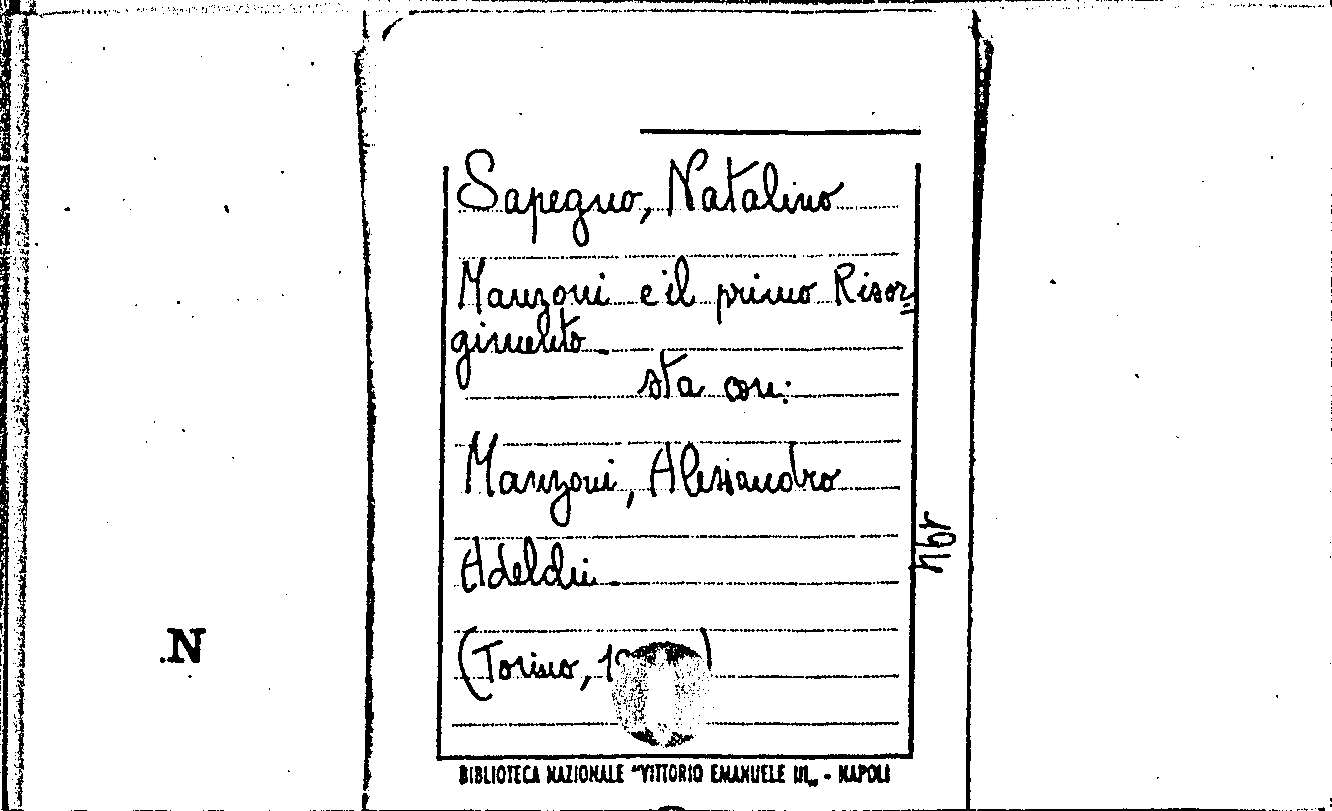 Sapegno, Natalino
Manzoni e il primo Risor=
gimento.
sta con:
Manzoni, Alessandro
Adelchi.
(Torino, 19 )
N
BIBLIOTECA NAZIONALE "VITTORIO EMANUELE III„ - NAPOLI